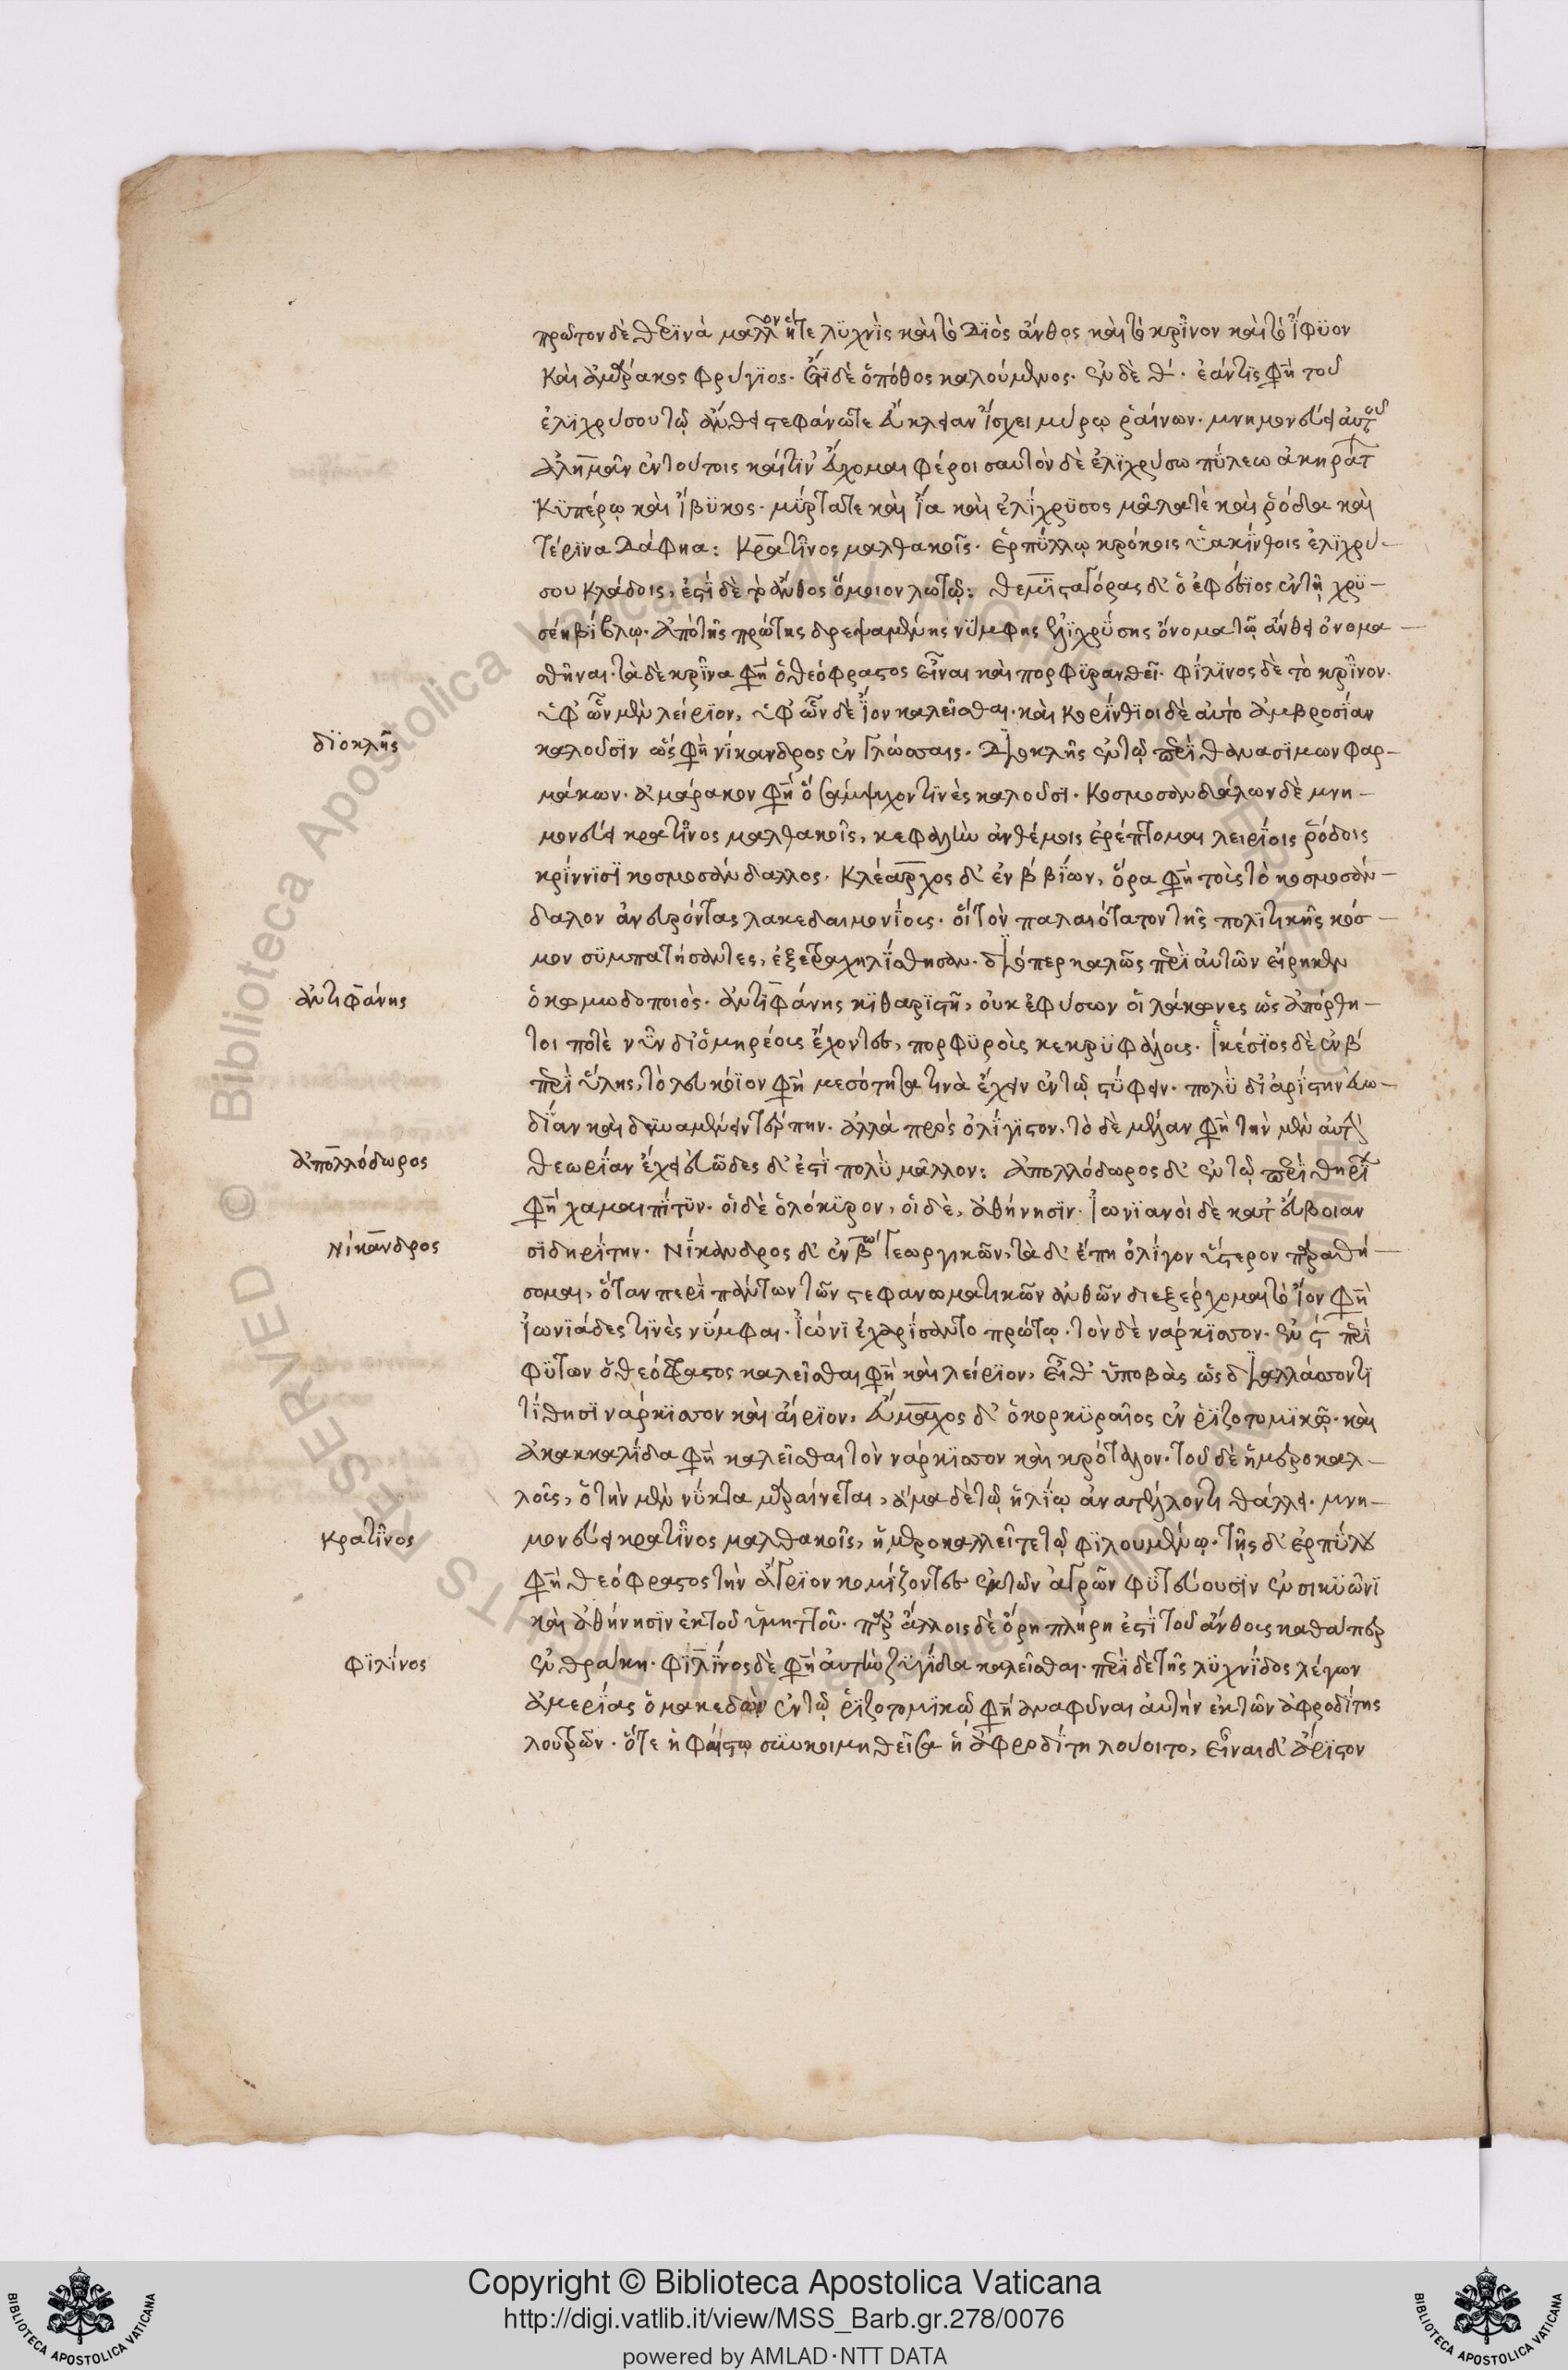 πρῶτον δὲ θερϊνὰ μᾶλλον ἥτε λϋχνὶς καὶ τὸ Δϊὸς ἄνθος καὶ τὸ κρῖνον καὶ τὸ ἴφϋον
καὶ ἀμάρακος φρύγϊος. ἔτϊ δὲ ὁ πόθος καλούμενος. ἐν δὲ θ΄. ἐάν τϊς φησὶ τοῦ
ἑλϊχρύσου τῷ ἄνθει στεφανῶται εὔκλειαν ἴσχει μύρῳ ῥαίνων. μνημονεύει αὐτοῦ
ἀλκμὰν ἐν τούτοις καί τϊν εὔχομαι φέροισα τὸν δὲ ἑλϊχρύσω πύλεω ἀκηράτ
κϋπέρω καὶ ἴβϋκος. μύρτα τε καὶ ἴα καὶ ἑλίχρϋσος μᾶλα τὲ καὶ ῥόδα καὶ
τέρϊνα δάφνα: Κρατῖνος μαλθακοῖς. ἑρπύλλῳ κρόκοις ὑακίνθοις ἑλϊχρύ-
σου κλάδοις, ἐστὶ δὲ τὸ ἄνθος ὅμοιον λωτῷ: θεμϊσταγόρας δ' ὁ ἐφέσϊος ἐν τῇ χρϋ-
σέη βίβλῳ. ἀπὸ τῆς πρώτης δρεψαμένης νύμφης ἑλϊχρύσης ὄνομα τῷ ἄνθει ὀνομα-
σθῆναι. τὰ δὲ κρῖνα φησὶ ὁ θεόφραστος εἶναι καὶ πορφϋρανθεῖ. φιλῖνος δὲ τὸ κρῖνον.
ὑφ' ὧν μὲν λείρϊον, ὑφ' ὧν δὲ ἴον καλεῖσθαι. καὶ κορίνθϊοι δὲ αὐτὸ ἀμβροσίαν
διοκλῆς
καλοῦσϊν ὥς φησὶ νίκανδρος ἐν γλώσσαις. Διοκλῆς ἐν τῷ περὶ θανασίμων φαρ-
μάκων. ἀμάρακον φησὶ ὃ σάμψυχον τϊνὲς καλοῦσι. Κοσμοσανδάλων δὲ μνη-
μονεύει κρατῖνος μαλθακοῖς, κεφαλὴν ἀνθέμοις ἐρέπτομαι λειρίοις ῥόδοις
κρίννισϊ κοσμοσάνδαλλος. Κλέαρχος δ' ἐν β βίων, ὅρα φησὶ τοὶς τὸ κοσμοσάν-
δαλον ἀνευρόντας λακεδαιμονίοις. οἳ τὸν παλαιότατον τῆς πολϊτικῆς κόσ-
μον σϋμπατήσαντες, ἐξετραχηλίσθησαν. διόπερ καλῶς περὶ αὐτῶν εἴρηκεν
ἀντιφάνης
ὁ κωμωδοποιὸς. ἀντιφάνης κϊθαρϊστῇ, οὐκ ἐφύσων οἱ λάκωνες ὡς ἀπόρθη-
τοι ποτὲ νῦν δ' ὁμηρέοις ἔχοντες, πορφϋροὶς κεκρϋφάλοις. Ἱκέσϊος δὲ ἐν β
περὶ ὕλης, τὸ λευκόϊον φησὶ μεσότητα τινὰ ἔχειν ἐν τῷ στύφειν. πολὺ δ' ἀρίστην εὐω-
δίαν καὶ δυναμένην τέρπην. ἀλλὰ πρὸς ὀλίγϊστον. τὸ δὲ μέλαν φησὶ τὴν μὲν αὐτὴν
ἀπολλόδωρος
θεωρίαν ἔχει εὐῶδες δ' ἐστὶ πολὺ μᾶλλον: ἀπολλόδωρος δ' ἐν τῷ περὶ θηρί
φησὶ χαμαιπίτϋν. οἱ δὲ ὁλόκϋρον, οἱ δὲ, ἀθήνησϊν. Ἰωνϊανοὶ δὲ κατ' εὔβοιαν
Νίκανδρος
σϊδηρίτην. Νίκανδρος δ' ἐν β γεωργικῶν, τὰ δ' ἔπη ὀλίγον ὕστερον παραθή-
σομαι, ὅταν περὶ πάντων τῶν στεφανωματικῶν ἀνθῶν διεξέρχομαι τὸ ἴον φησὶ
ἰωνϊάδες τϊνὲς νύμφαι. ἰώνϊ ἐχαρίσαντο πρώτῳ. τὸν δὲ νάρκϊσσον. ἐν ϛ περὶ
φϋτων ὁ θεόφραστος καλεῖσθαι φησὶ καὶ λείρϊον, εἶθ' ὑποβὰς ὡς διαλλάσσοντϊ
τίθησϊ νάρκϊσσον καὶ αἴρϊον, εὔμαχος δ' ὁ κορκϋραῖος ἐν ῥϊζοτομϊκῷ. καὶ
ἀκακκαλίδα φησὶ καλεῖσθαι τὸν νάρκϊσσον καὶ κρόταλον. τοῦ δὲ ἡμεροκαλ-
λοῖς, ὃ τὴν μὲν νύκτα μαραίνεται, ἅμα δὲ τῷ ἡλίῳ ἀνατέλλοντι θάλλει. μνη-
κρατῖνος
μονεύει κρατῖνος μαλθακοῖς, ἡμεροκαλλεῖ τε τῷ φϊλουμένῳ. τῆς δ' ἑρπύλου
φησὶ θεόφραστος τὴν ἄγρϊον κομίζοντες ἐκ τῶν ἀγρῶν φϋτεύουσϊν ἐν σικϋῶνϊ
καὶ ἀθήνησϊν ἐκ τοῦ ὑμηττοῦ. παρ' ἄλλοις δὲ ὄρη πλήρη ἐστὶ τοῦ ἄνθοις καθάπερ
φϊλίνος
ἐν θράκη. φϊλῖνος δὲ φησὶ αὐτὴν ζϋγίδα καλεῖσθαι. περὶ δὲ τῆς λϋχνίδος λέγων
ἀμερίας ὁ μακεδὼν ἐν τῷ ῥϊζοτομϊκῷ φησὶ ἀναφῦναι αὐτὴν ἐκ τῶν ἀφροδίτης
λουτρῶν. ὅτε ἡφαίστῳ σϋγκοιμηθεῖσα ἡ ἀφροδίτη λούοιτο, εἶναι δ' ἄρϊστον
Copyright © Biblioteca Apostolica Vaticana
http://digi.vatlib.it/view/MSS_Barb.gr.278/0076
powered by AMLAD·NTT DATA